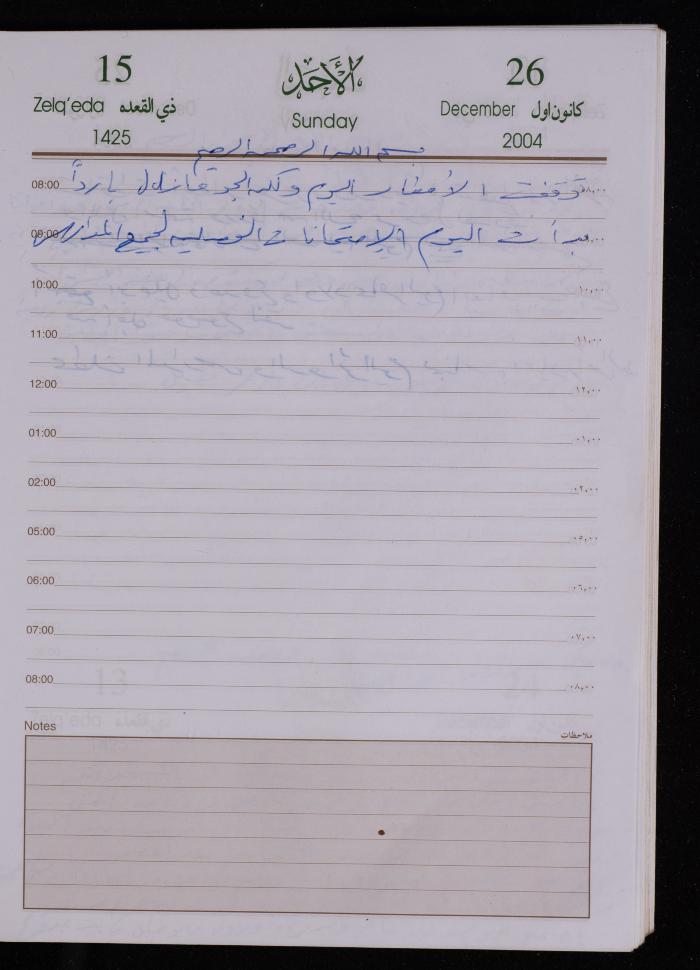 15 الأحد 26
Zelq'eda ذي القعده Sunday December كانون اول
1425 2004
بسم الله الرحمن الرحيم
08:00 توقفت الأمطار اليوم ولكن الجو مازال بارداً ٠٨,٠٠
09:00 بدأت اليوم الامتحانات الفصلية لجميع المدارس
10:00 ١٠,٠٠
11:00 ١١,٠٠
12:00 ١٢,٠٠
01:00 ٠١,٠٠
02:00 ٠٢,٠٠
05:00 ٠٥,٠٠
06:00 ٠٦,٠٠
07:00 ٠٧,٠٠
08:00 ٠٨,٠٠
Notes ملاحظات